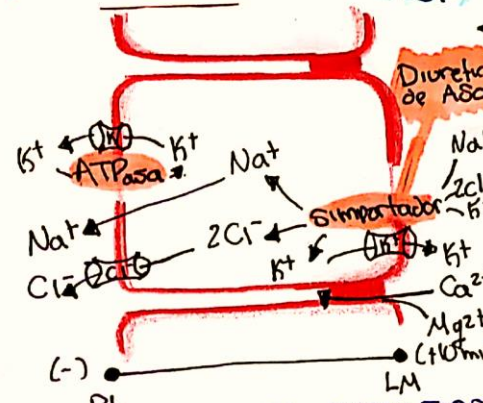 Diuretic
de Asa
K⁺
K⁺
K⁺
ATPasa
Na⁺
Na⁺
2Cl⁻
K⁺
Simportador
Na⁺
Cl⁻
2Cl⁻
2Cl⁻
K⁺
K⁺
K⁺
Ca²
Mg2+
(-)
(+10m
LM